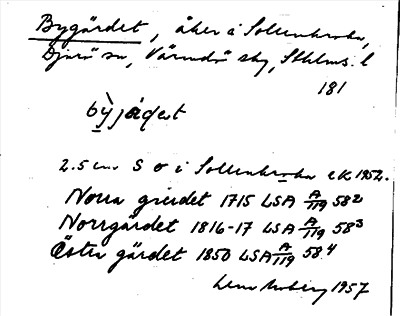 Bygärdet, åker i Sollenkroka,
Djurö sn, Värmdö skg, Sthlms. l
181
2.5 cm S o i Sollenkroka ek 1952.
Norra gierdet 1715 LSA A/119 58²
Norrgärdet 1816-17 LSA A/119 58³
Östra gärdet 1850 LSA A/119 58⁴
1957